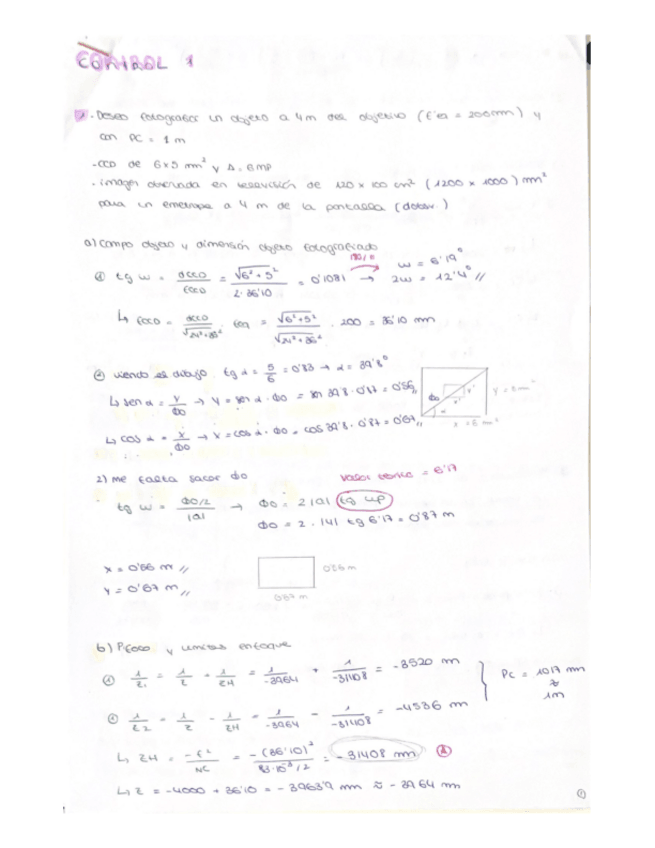 CONTROL 1
1. Deseo fotografiar un objeto a 4m del objetivo (f'eq = 200mm) y
con PC = 1 m
- CCD de 6x5 mm² y Δ = 8mp
- imagen observada en televisión de 120 x 100 cm² (1200 x 1000) mm²
para un emetrope a 4 m de la pantalla (dobsv.)
a) Campo objeto y dimensión objeto fotografiado
① tg w = dCCD / fCCD = √6²+5² / 2·36'10 = 0'1081 → w = 6'19°
2w = 12'4° //
↳ fCCD = dCCD / √24²+36² · feq = √6²+5² / √24²+36² · 200 = 36'10 mm
② viendo el dibujo tg α = 5/6 = 0'83 → α = 39'8°
↳ sen α = y/ΦO → y = sen α · ΦO = sen 39'8 · 0'87 = 0'56 //
↳ cos α = x/ΦO → x = cos α · ΦO = cos 39'8 · 0'87 = 0'67 //
ΦO
α
x = 6 mm
2) me falta sacar ΦO
valor teórico = 6'17
tg w = ΦO/2 / |a| → ΦO = 2 |a| tg wp
ΦO = 2 · |4| tg 6'17 = 0'87 m
x = 0'56 m //
y = 0'67 m //
b) Pfoco y límites enfoque
① 1/z₁ = 1/z + 1/zH = 1/-3964 + 1/-31408 = -3520 mm
PC = 1017 mm
≈
1m
② 1/z2 = 1/z - 1/zH = 1/-3964 - 1/-31408 = -4536 mm
↳ zH = -f'² / NC = -(36'10)² / 83·10⁻³/2 = -31408 mm
↳ z = -4000 + 36'10 = -3963'9 mm ≈ -3964 mm
①